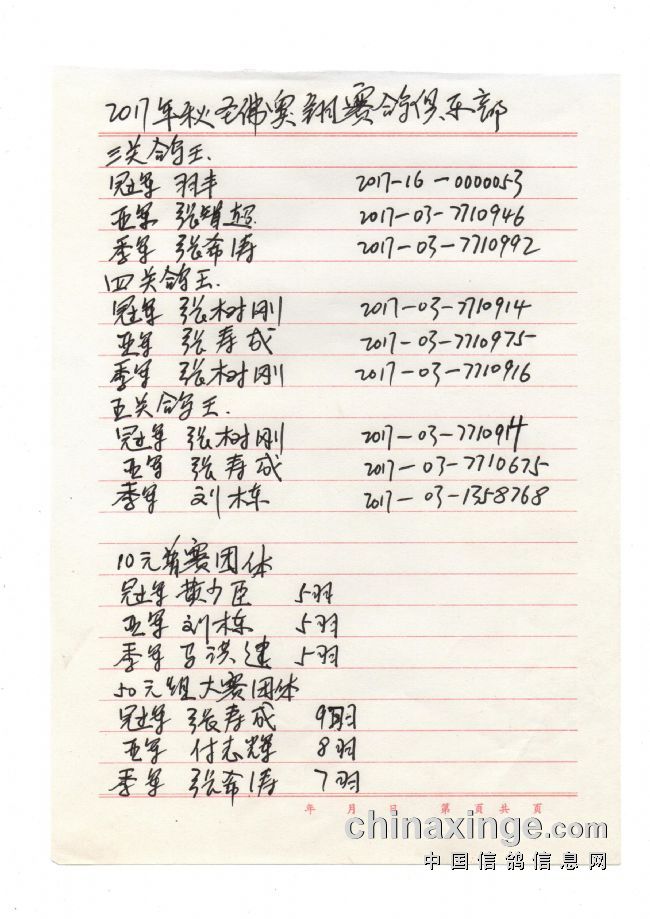 2017年秋圣佛奥翔赛鸽俱乐部
三关鸽王.
冠军 羽丰 2017-16-0000053
亚军 张增超 2017-03-7710946
季军 张希涛 2017-03-7710992
四关鸽王.
冠军 张树刚 2017-03-7710914
亚军 张寿成 2017-03-7710975
季军 张树刚 2017-03-7710916
五关鸽王.
冠军 张树刚 2017-03-7710914
亚军 张寿成 2017-03-7710675
季军 刘栋 2017-03-1358768
10元普赛团体
冠军 黄少臣 5羽
亚军 刘栋 5羽
季军 马洪建 5羽
50元组大赛团体
冠军 张寿成 9羽
亚军 付志辉 8羽
季军 张希涛 7羽
年 月 日 第 页 共 页
chinaxinge.com
中国信鸽信息网